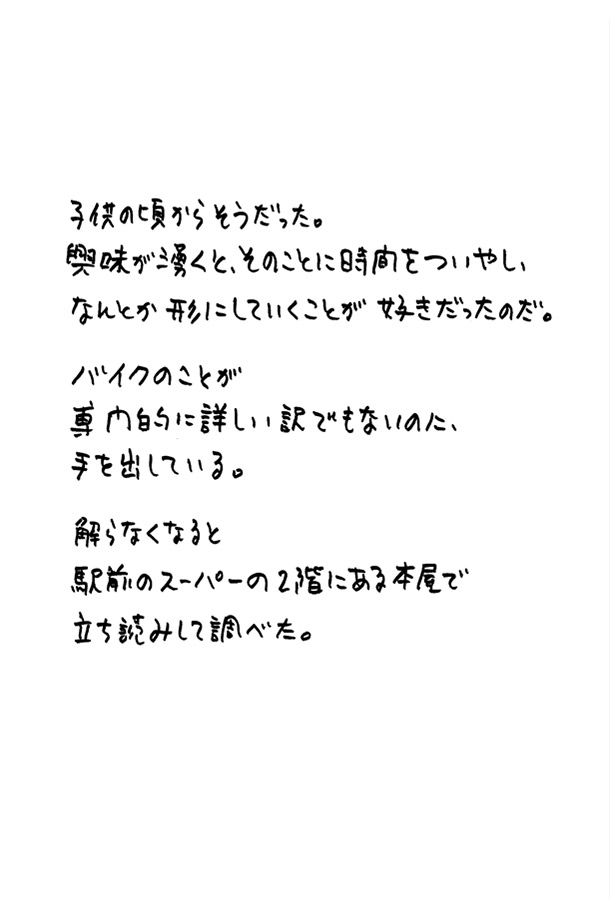 子供の頃からそうだった。
興味が湧くと、そのことに時間をついやし、
なんとか形にしていくことが好きだったのだ。
バイクのことが
専門的に詳しい訳でもないのに、
手を出している。
解らなくなると
駅前のスーパーの2階にある本屋で
立ち読みして調べた。